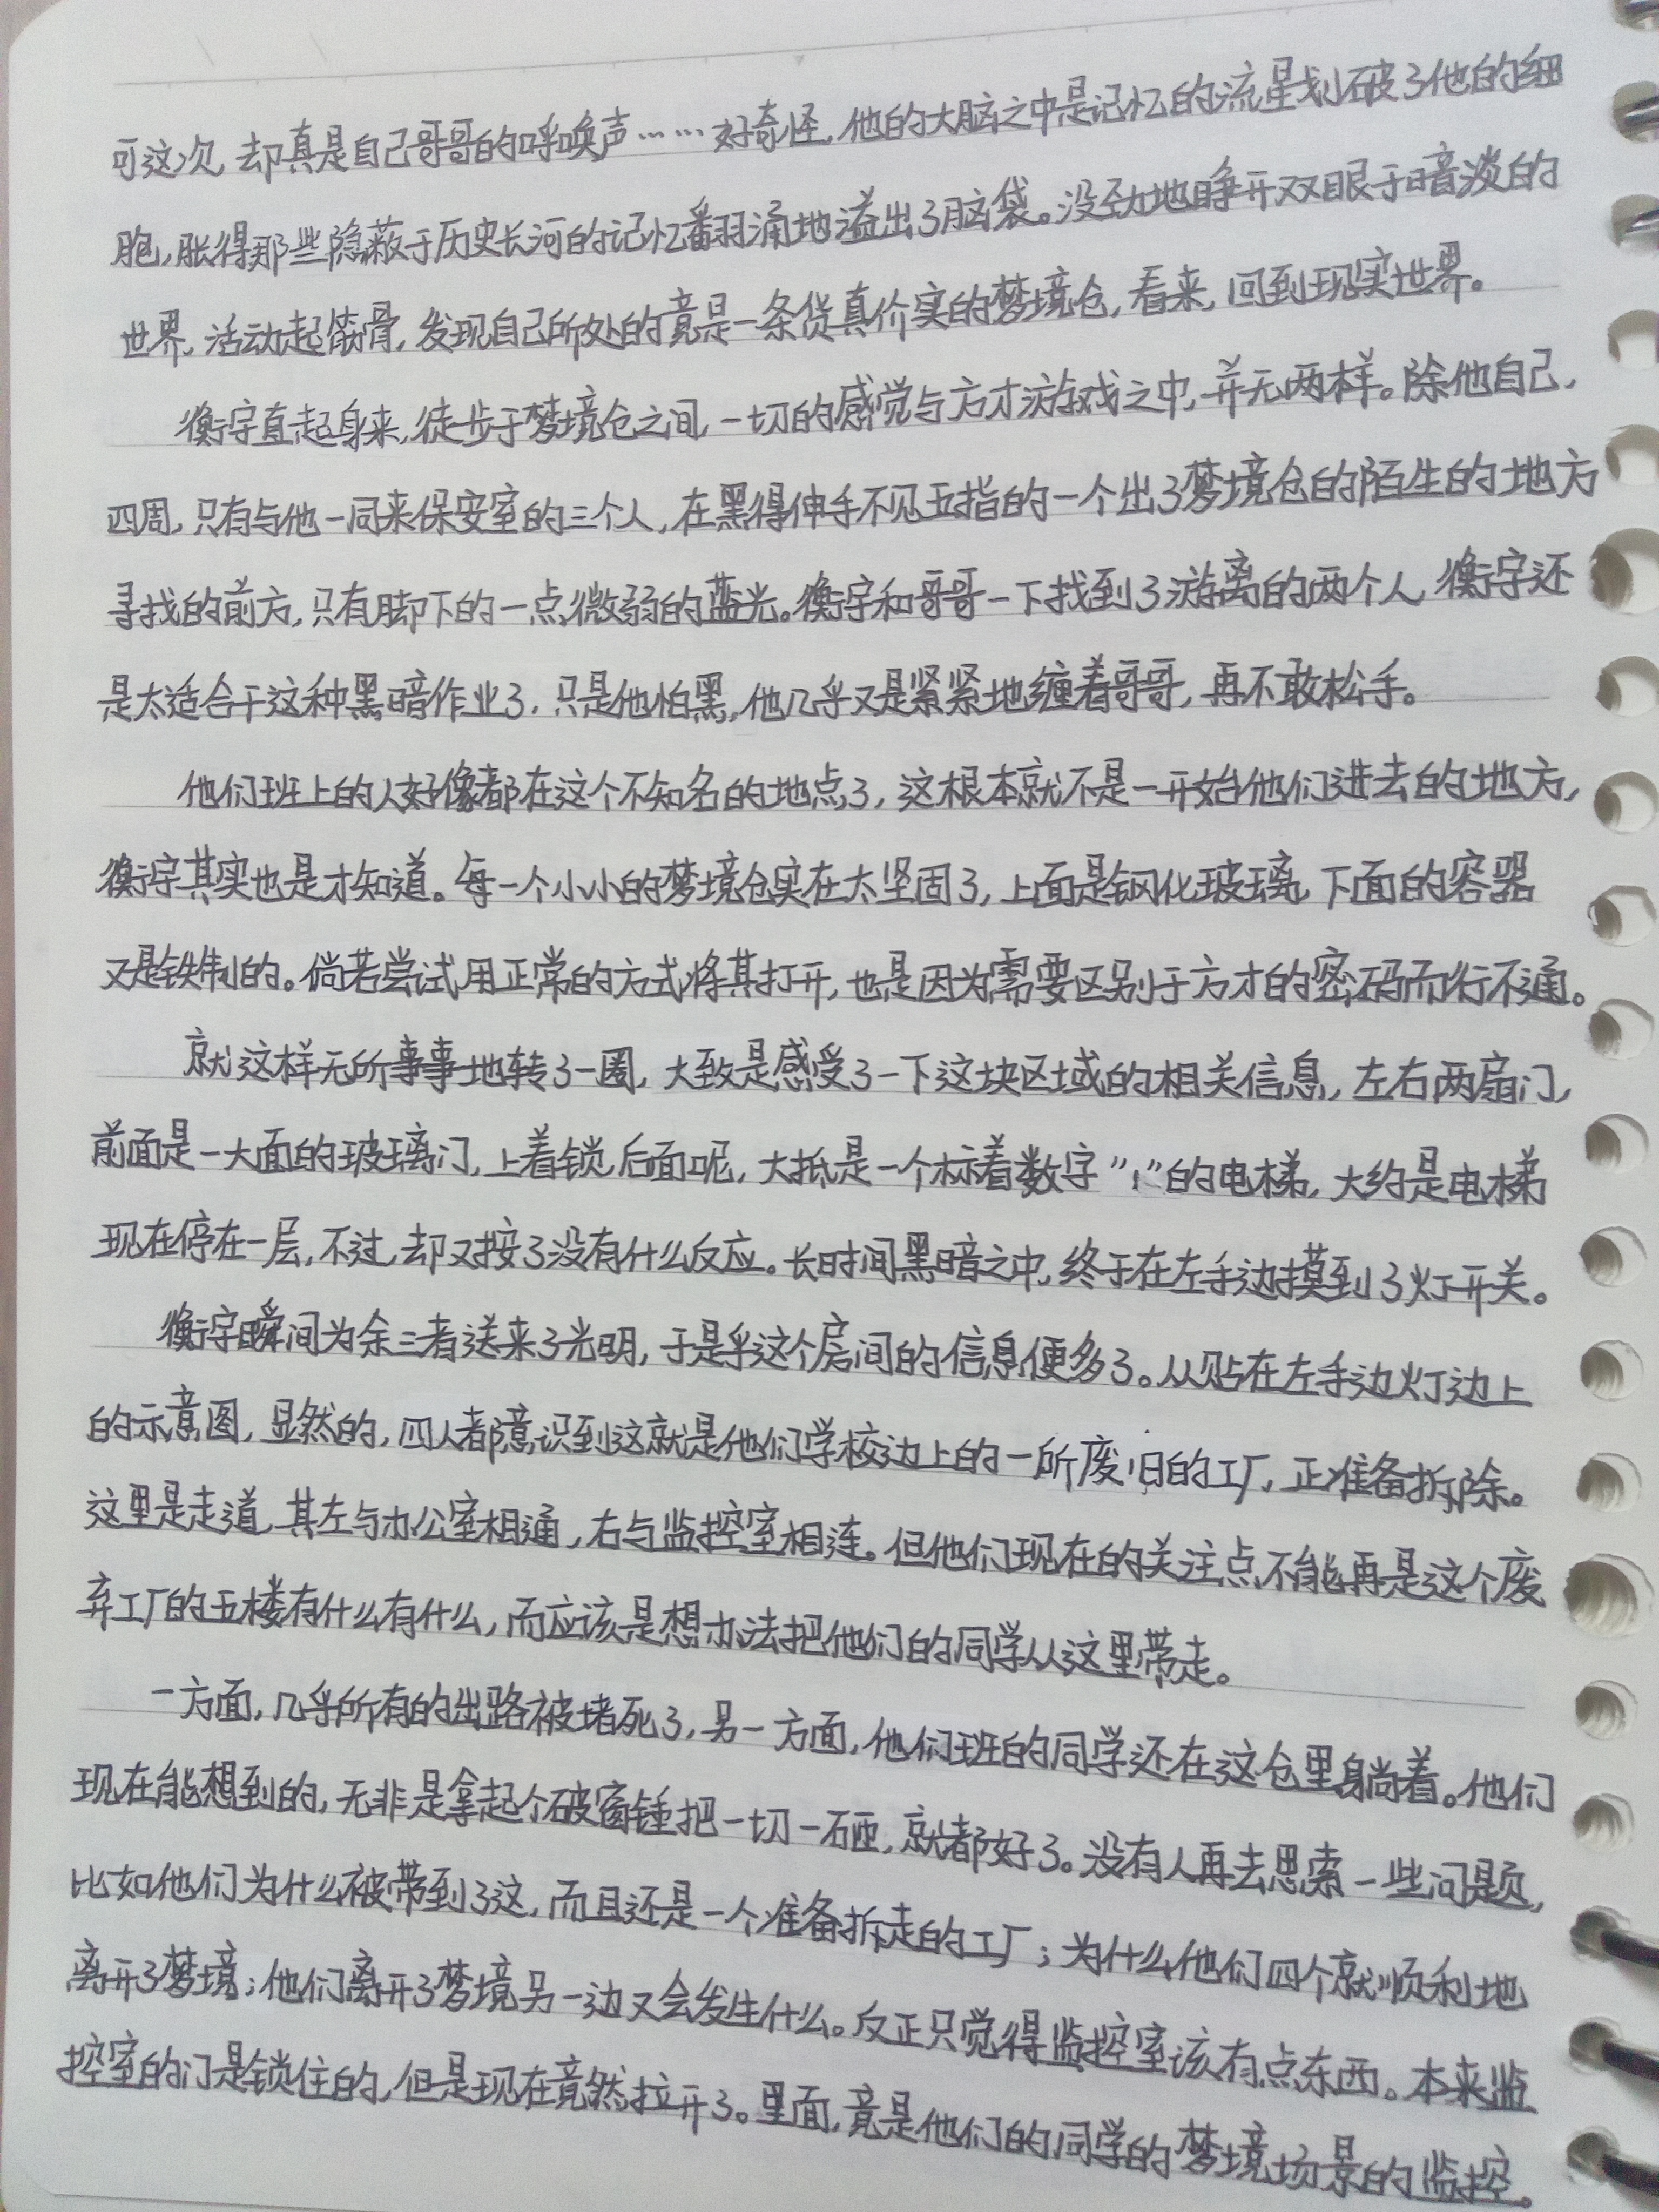 可这次,却真是自己哥哥的呼唤声……好奇怪,他的大脑之中是记忆的流星划破了他的细
胞,胀得那些隐蔽于历史长河的记忆翻涌地溢出了脑袋。没劲地睁开双眼于暗淡的
世界,活动起筋骨,发现自己所处的竟是一条货真价实的梦境仓,看来,回到现实世界。
衡宇直起身来,徒步于梦境仓之间,一切的感觉与方才游戏之中,并无两样。除他自己,
四周,只有与他一同来保安室的三个人,在黑得伸手不见五指的一个出了梦境仓的陌生的地方
寻找的前方,只有脚下的一点微弱的蓝光。衡宇和哥哥一下找到了游离的两个人,衡宇还
是太适合干这种黑暗作业了,只是他怕黑,他几乎又是紧紧地缠着哥哥,再不敢松手。
他们班上的人好像都在这个不知名的地点了,这根本就不是一开始他们进去的地方,
衡宇其实也是才知道。每一个小小的梦境仓实在太坚固了,上面是钢化玻璃,下面的容器
又是铁制的。倘若尝试用正常的方式将其打开,也是因为需要区别于方才的密码而行不通。
就这样无所事事地转了一圈,大致是感受了一下这块区域的相关信息,左右两扇门,
前面是一大面的玻璃门,上着锁,后面呢,大抵是一个标着数字"1"的电梯,大约是电梯
现在停在一层,不过,却又按了没有什么反应。长时间黑暗之中,终于在左手边摸到了灯开关。
衡宇瞬间为余三者送来了光明,于是乎这个房间的信息便多了。从贴在左手边灯边上
的示意图,显然的,四人都意识到这就是他们学校边上的一所废旧的工厂,正准备拆除。
这里是走道,其左与办公室相通,右与监控室相连。但他们现在的关注点不能再是这个废
弃工厂的五楼有什么有什么,而应该是想办法把他们的同学从这里带走。
一方面,几乎所有的出路被堵死了,另一方面,他们班的同学还在这仓里躺着。他们
现在能想到的,无非是拿起个破窗锤把一切一砸,就都好了。没有人再去思索一些问题,
比如他们为什么被带到了这,而且还是一个准备拆走的工厂;为什么他们四个就顺利地
离开了梦境;他们离开了梦境另一边又会发生什么。反正只觉得监控室该有点东西。本来监
控室的门是锁住的,但是现在竟然拉开了。里面,竟是他们的同学的梦境场景的监控。